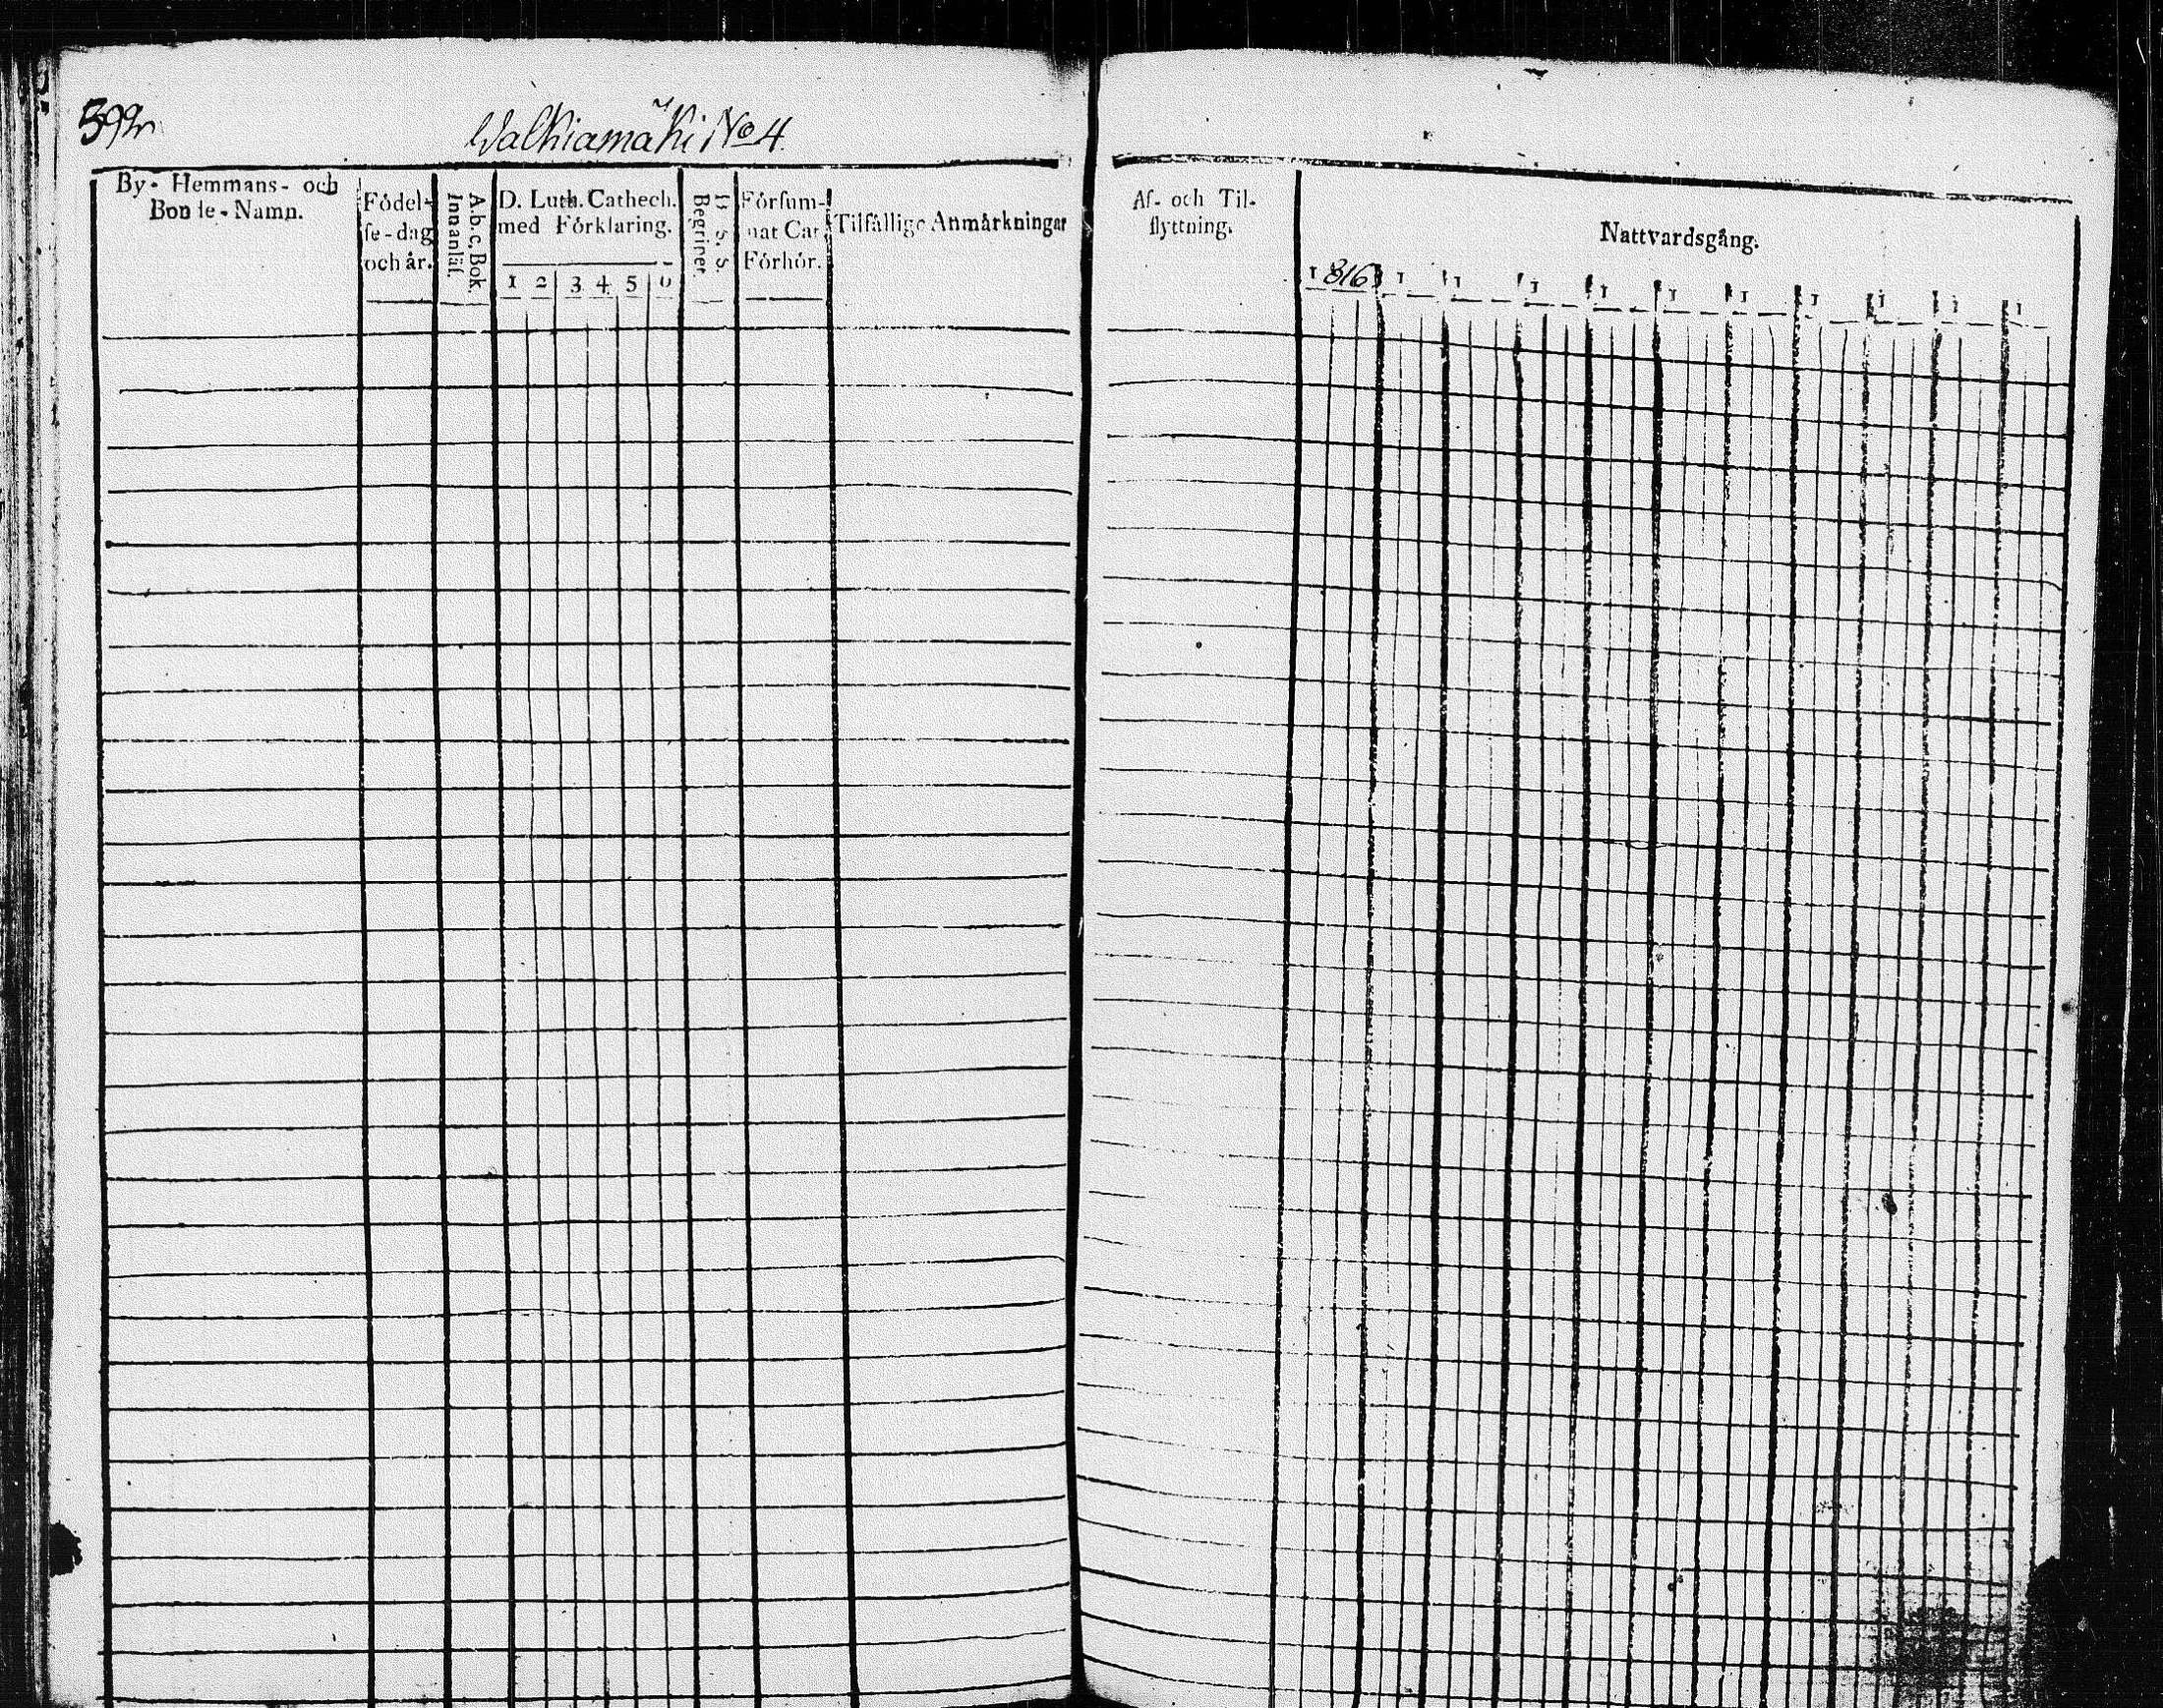 592
Walkiamäki No 4
By- Hemmans- och
Bonde-Namn.
Födel-
se-dag
och år.
A.b.c. Bok
Innanläs.
D. Luth. Cathech.
med Förklaring.
1 2 3 4 5 6
Begriper.
Försum-
nat Cat.
Förhör.
Tilfällige Anmärkningar
Af- och Til-
flyttning.
Nattvardsgång.
1816 1 1 1 1 1 1 1 1 1 1